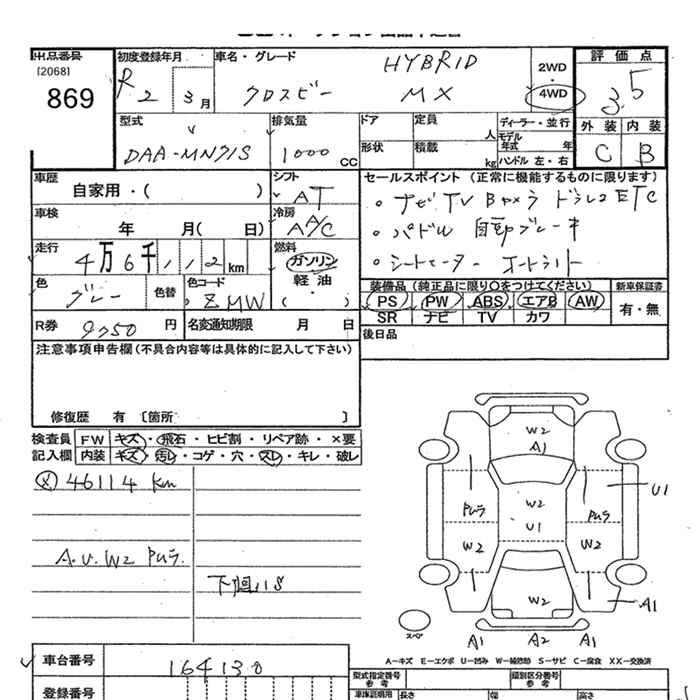 出品番号
[2068]
869
初度登録年月
R 2 3月
車名・グレード
HYBRID
クロスビー MX
2WD
・
4WD
評価点
3.5
外装 内装
C B
型式
DAA-MN71S
排気量
1000 CC
ドア
定員
人
形状
積載
kg
ディーラー・並行
モデル年式 年
ハンドル 左・右
車歴
自家用・( )
シフト
AT
車検
年 月( 日)
冷房
A/C
走行
4万6千112km
燃料
ガソリン
軽油
・( )
色
グレー
色替
色コード
ZMW
R券
9250円
名変通知期限 月 日
セールスポイント (正常に機能するものに限ります)
。ナビ TV Bカメラ ドラレコ ETC
。パドル 自動ブレーキ
。シートヒーター オートライト
装備品(純正品に限り○をつけてください)
PS PW ABS エアB AW
SR ナビ TV カワ
新車保証書
有・無
後日品
注意事項申告欄(不具合内容等は具体的に記入して下さい)
修復歴 有 〔箇所 〕
検査員
記入欄
FW キズ・飛石・ヒビ割・リペア跡・×要
内装 キズ・汚レ・コゲ・穴・スレ・キレ・破レ
46114 km
A.U.W2 PUラ
下廻りS
W2
A1
W2
U1
PUラ
PUラ
U1
W2
W2
W2
A1
A1 A2 A1
スペア
A-キズ E-エクボ U-凹み W-補修跡 S-サビ C-腐食 XX-交換済
車台番号
164130
登録番号
型式指定番号
参考
類別区分番号
参考
車庫証明用 長さ 幅 高さ